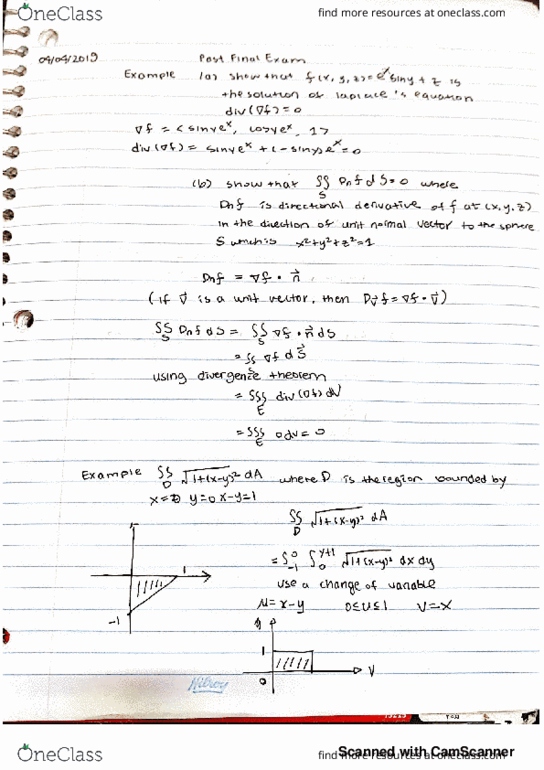 OneClass
find more resources at oneclass.com
04/04/2019
Post Final Exam
Example (a) show that f(x, y, z) = eˣ siny + z is
the solution of laplace's equation
div(∇f) = 0
∇f = < sinyeˣ, cosyeˣ, 1>
div(∇f) = sinyeˣ + (-siny)eˣ = 0
(b) show that ∬_S Dnf dS = 0 where
Dnf is directional derivative of f at (x, y, z)
in the direction of unit normal vector to the sphere
S which is x²+y²+z²=1
Dnf = ∇f · n⃗
(if v⃗ is a unit vector, then Dv⃗f = ∇f · v⃗)
∬_S Dnf dS = ∬_S ∇f · n⃗ dS
= ∬_S ∇f dS⃗
using divergence theorem
= ∭_E div(∇f) dV
= ∭_E 0dV = 0
Example ∬_D √1+(x-y)² dA where D is the region bounded by
x=0 y=0 x-y=1
∬_D √1+(x-y)² dA
= ∫₋₁⁰ ∫₀^(y+1) √1+(x-y)² dx dy
use a change of variable
u = x-y 0≤u≤1 v=x
1
-1
1
0
V
Hilroy
OneClass
find more resources at oneclass.com
Scanned with CamScanner